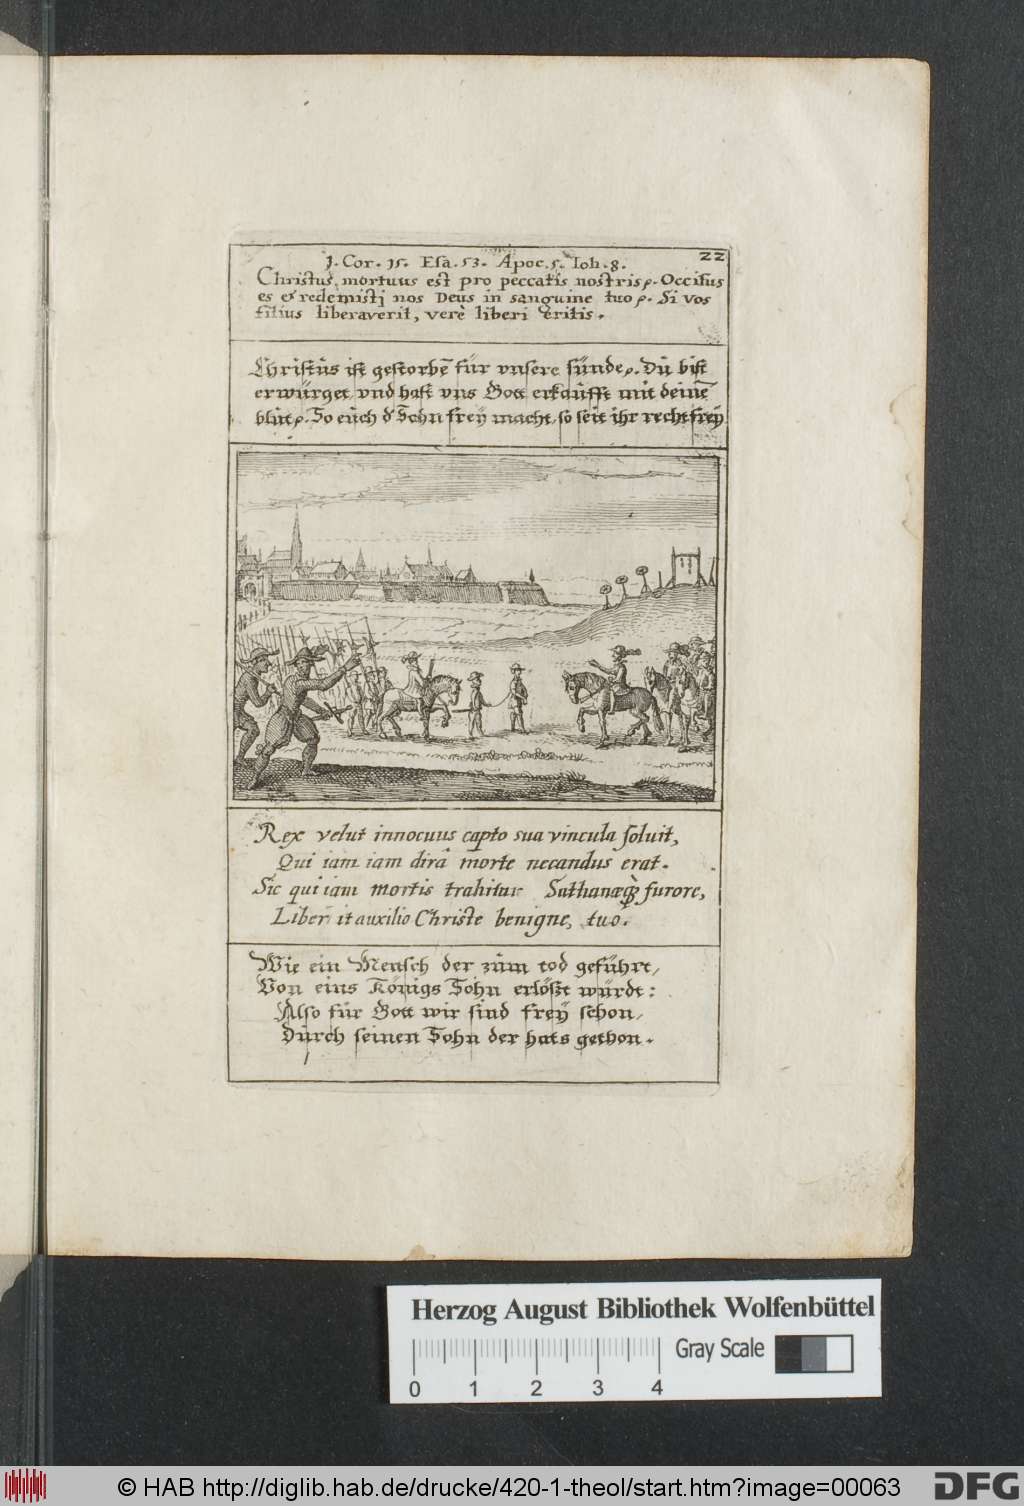 22
1. Cor. 15. Esa. 53. Apoc. 5. Ioh. 8.
Christus mortuus est pro peccatis nostris ꝛ. Occisus
es et redemisti nos Deus in sanguine tuo ꝛ. Si vos
filius liberaverit, verè liberi eritis.
Christus ist gestorbē für vnsere sünde ꝛ. Du bist
erwürget, vnd hast vns Gott erkaufft mit deinē
blut ꝛ. So euch d' Sohn frey macht, so seit ihr recht frey
Rex velut innocuus capto sua vincula soluit,
Qui iam iam dirâ morte necandus erat.
Sic qui iam mortis trahitur Sathanæq̢ furore,
Liber it auxilio Christe benigne, tuo.
Wie ein Mensch der zum tod geführt,
Von eins Königs Sohn erlößt würdt:
Also für Gott wir sind frey schon,
Durch seinen Sohn der hats gethon.
Herzog August Bibliothek Wolfenbüttel
Gray Scale
0 1 2 3 4
© HAB http://diglib.hab.de/drucke/420-1-theol/start.htm?image=00063
DFG